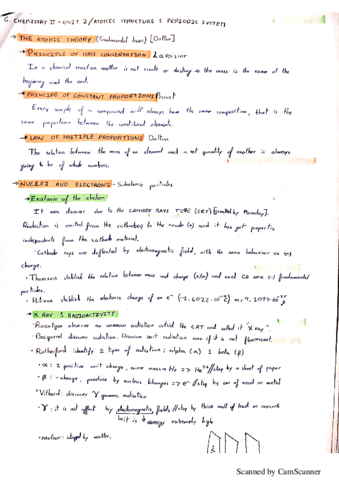 G. CHEMISTRY II - UNIT 2 / ATOMIC STRUCTURE & PERIODIC SYSTEM
→ THE ATOMIC THEORY (Fundamental laws) [Dalton]
→ PRINCIPLE OF MASS CONSERVATION Lavoisier
In a chemical reaction matter is not create or destroy → the mass is the same at the
begining and the end.
→ PRINCIPLE OF CONSTANT PROPORTIONS Proust
Every sample of a compound will always have the same composition, that is the
same proportions between the constituent elements.
→ LAW OF MULTIPLE PROPORTIONS Dalton
The relation between the mass of an element and a set quantity of another is always
going to be of whole numbers.
→ NUCLEI AND ELECTRONS - Subatomic particles
→ Existance of the electron
It was discover due to the CATHODE RAYS TUBE (CRT) [created by Faraday].
Radiation is emited from the cathode(-) to the anode (+) and it has got properties
independents from the cathode material.
Cathode rays are deflected by electromagnetic field, with the same behaviour as (-)
charge.
· Thomson stablish the relation between mass and charge (e/m) and said CR are (-) fundamental
particles.
· Milikan stablish the electronic charge of an e⁻
→ X RAY & RADIOACTIVITY
· Roentgen observe an unknown radiation outside the CRT and called it "X ray".
· Becquerel discover radiation. Uranium emit radiation even if it is not fluorescent.
· Rutherford identify 2 types of radiation: alpha (α) & beta (β)
· α: 2 positive unit charge, same mass as He → He²⁺ // stop by a sheet of paper
· β: - charge, produce by nucleus changes → e⁻ // stop by cm of wood or metal
· Villard: discover γ gamma radiation
· γ: it is not affect by electromagnetic fields // stop by thick wall of lead or concrete
but it is energy extremely high
· neutron: stopped by water.
Scanned by CamScanner